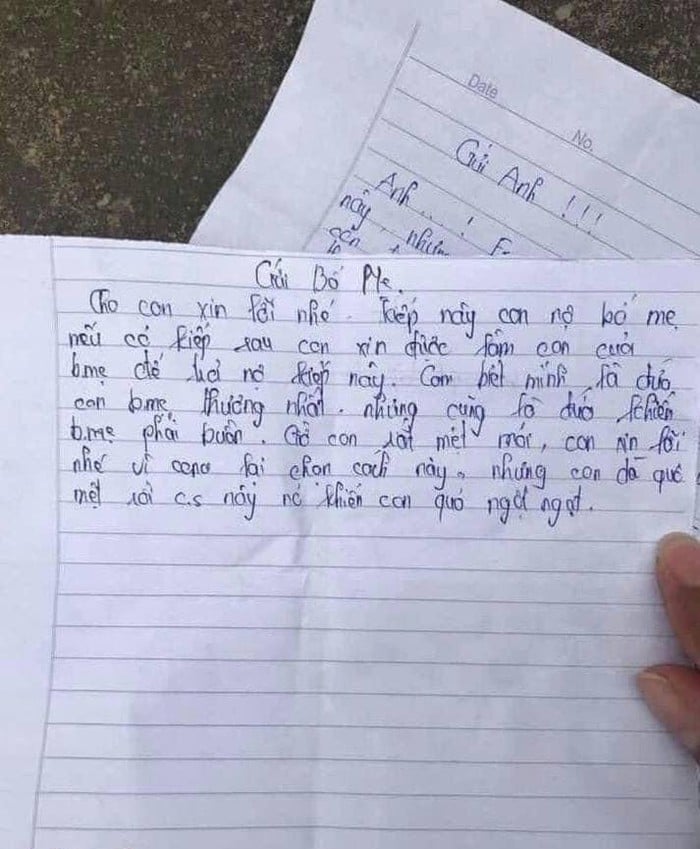 Date
No.
Gửi Anh !!!
Anh... !
này, nhưng
Gửi Bố Mẹ.
Cho con xin lỗi nhé. Kiếp này con nợ bố mẹ
nếu có kiếp sau con xin được làm con của
b mẹ để trả nợ kiếp này. Con biết mình là đứa
con b.mẹ thương nhất. nhưng cũng là đứa khiến
b.mẹ phải buồn. Giờ con rất mệt mỏi, con xin lỗi
nhé vì con lại chọn cách này, nhưng con đã quá
mệt rồi c.s này nó khiến con quá ngột ngạt.